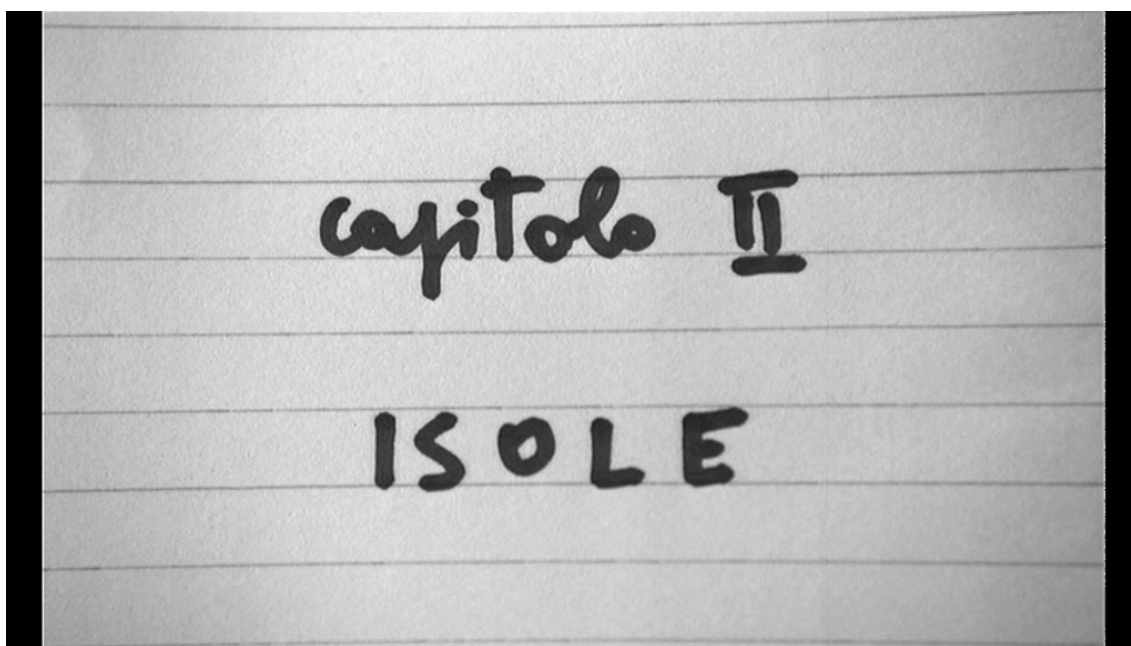 capitolo II
ISOLE